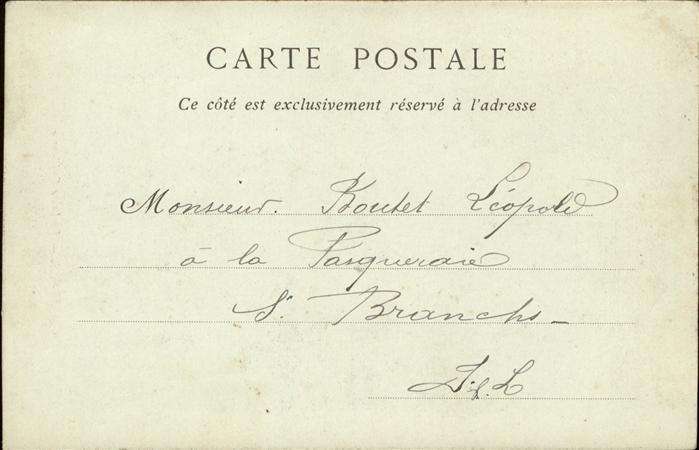 CARTE POSTALE
Ce côté est exclusivement réservé à l'adresse
Monsieur. Boutet Léopold
à la Pasqueraie
St Branchs_
I.&.L